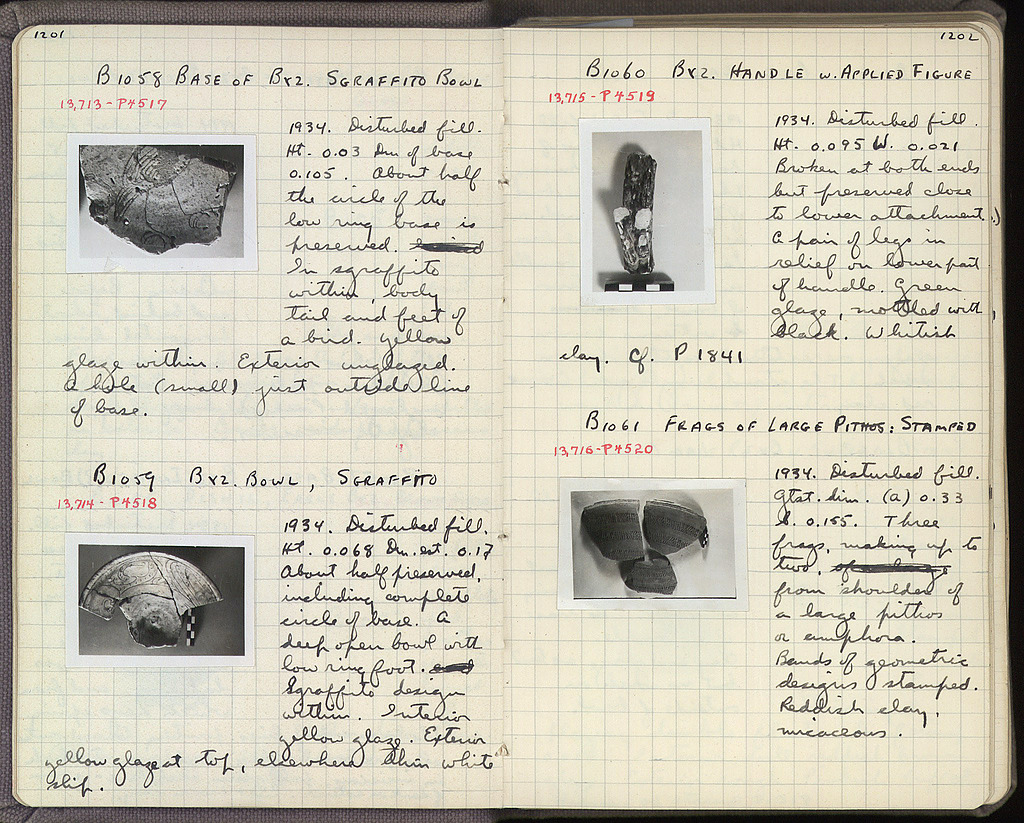 1201
B1058 BASE OF BYZ. SGRAFFITO BOWL
13,713 - P4517
1934. Disturbed fill.
Ht. 0.03 Dm of base
0.105. About half
the circle of the
low ring base is
preserved.
In sgraffito
within, body
tail and feet of
a bird. Yellow
glaze within. Exterior unglazed.
A hole (small) just outside line
of base.
B1059 BYZ. BOWL, SGRAFFITO
13,714 - P4518
1934. Disturbed fill.
Ht. 0.068 Dm. est. 0.17
About half preserved,
including complete
circle of base. A
deep open bowl with
low ring foot.
Sgraffito design
within. Interior
yellow glaze. Exterior
yellow glaze at top, elsewhere thin white
slip.
1202
B1060 BYZ. HANDLE W. APPLIED FIGURE
13,715 - P4519
1934. Disturbed fill.
Ht. 0.095 W. 0.021
Broken at both ends
but preserved close
to lower attachment.
A pair of legs in
relief on lower part
of handle. Green
glaze, mottled with
black. Whitish
clay. Cf. P 1841
B1061 FRAGS OF LARGE PITHOS: STAMPED
13,716 - P4520
1934. Disturbed fill.
Gtst. dim. (a) 0.33
b. 0.155. Three
frags, making up to
two,
from shoulder of
a large pithos
or amphora.
Bands of geometric
designs stamped.
Reddish clay,
micaceous.